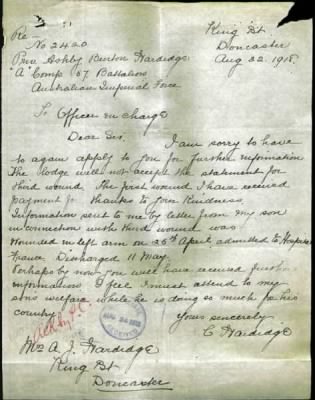 Re-
King St
No 2420
Doncaster
Priv Ashby Burton Wardidge
Aug 22. 1918.
"A" Comp 57 Battalion
Australian Imperial Force
To Officer in Charge
Dear Sir,
I am sorry to have
to again apply to you for further information
The Lodge will not accept the statement for
third wound. The first wound I have received
payment for thanks to your kindness.
Information sent to me by letter from my son
in connection with third wound was
Wounded in left arm on 25th April admitted to Hospital
France. Discharged 11 May.
Perhaps by now you will have received further
information. I feel I must attend to my
sons welfare while he is doing so much for his
country.
Yours sincerely
C Wardidge
Mrs A. J. Wardidge
King St
Doncaster